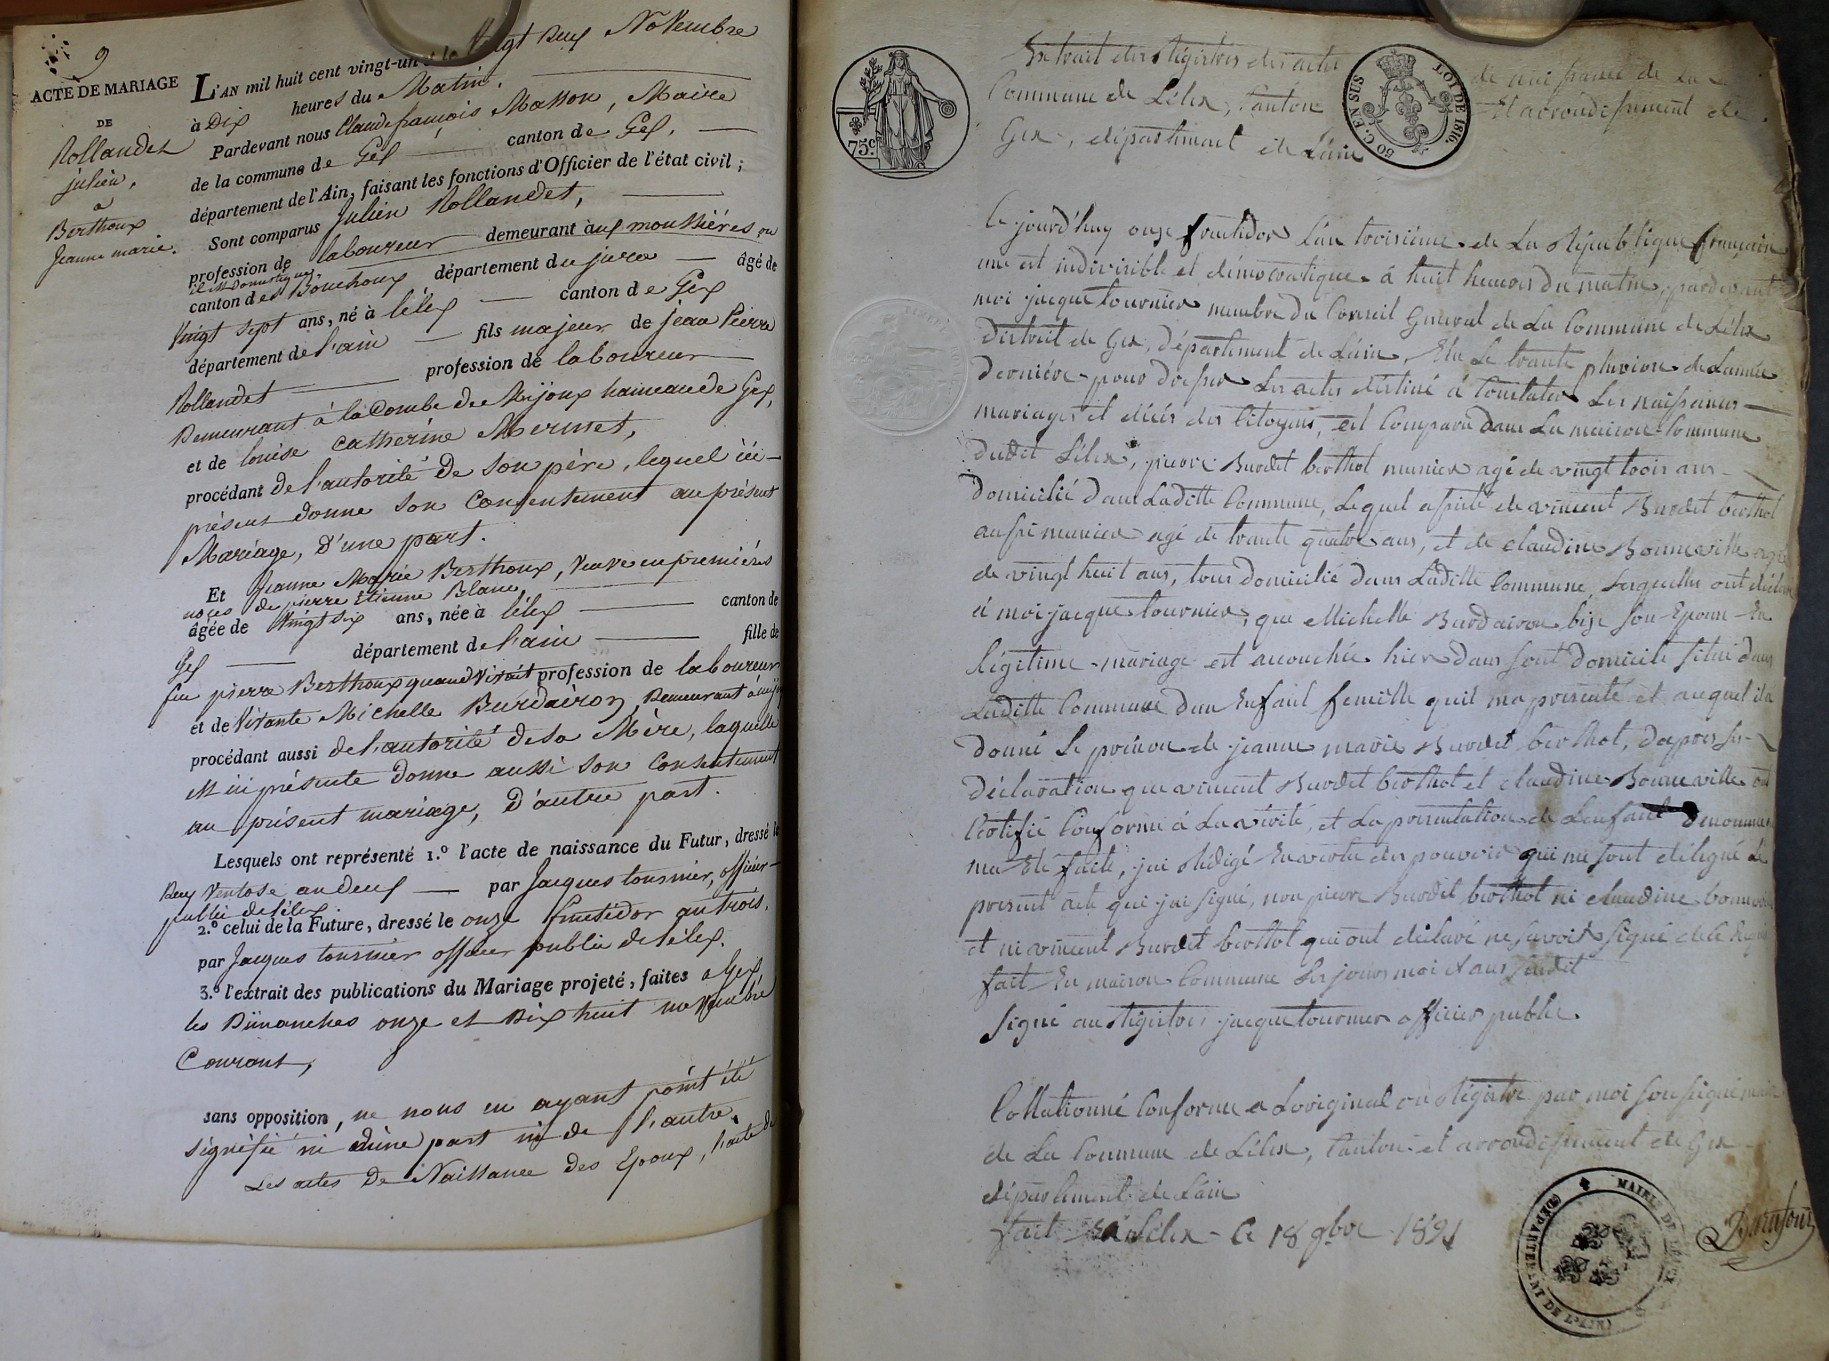 9
ACTE DE MARIAGE
DE
Rollandet
julien,
à
Berthoux
Jeanne marie.
L'AN mil huit cent vingt-un & le Vingt Deux Novembre
à Dix heures du Matin.
Pardevant nous Claude françois Masson, Maire
de la commune de Gex canton de Gex.
département de l'Ain, faisant les fonctions d'Officier de l'état civil;
Sont comparus Julien Rollandet,
profession de laboureur demeurant aux moussières ou
il est Domestique,
canton des Bouchoux département du jura âgé de
Vingt sept ans, né à lélex canton de Gex
département de l'ain fils majeur de jean Pierre
Rollandet profession de laboureur
Demeurant à la Combe de Mijoux hameau de Gex,
et de louise Catherine Mermet,
procédant de l'autorité de son père, lequel ici
présent donne son Consentement au présent
Mariage, D'une part.
Et Jeanne Marie Berthoux, Veuve en premières
noces de pierre Etienne Blanc,
âgée de Vingt six ans, née à lélex canton de
Gex département de l'ain fille de
feu pierre Berthoux quand vivait profession de laboureur
et de Vivante Michelle Burdairon, Demeurant à
procédant aussi de l'autorité de sa Mère, laquelle
est ici présente donne aussi son Consentement
au présent mariage, D'autre part.
Lesquels ont représenté 1.º l'acte de naissance du Futur, dressé le
Deux Ventose an deux par Jacques tournier, officier
public de lélex.
2.º celui de la Future, dressé le onze fructidor an trois,
par Jacques tournier officier public de lélex.
3.º l'extrait des publications du Mariage projeté, faites à Gex,
les Dimanches onze et Dix huit novembre
Courant,
sans opposition, ne nous en ayant point été
signifié ni d'une part ni de l'autre.
Les actes De Naissance des Epoux, l'acte de
75.C
50 C. EN SUS
LOI DE 1816.
Extrait des Régistres des actes de naissance de la
Commune de Lélex, Canton Et arrondissement de
Gex, département de L'ain
Ce jourd'huy onze fructidor L'an troisième de La République française
une est indivisible et démocratique à huit heures du matin, pardevant
moi jacque tournier membre du Conseil Général de La Commune de Lélex
District de Gex, Département de L'ain, Elu Le trante pluviose de L'année
dernière pour dresser Les actes destiné à Constater Les naissances
mariages et décés des Citoyens, est Comparu dans La maison Commune
dudit Lélex, pierre Burdet berthot munier agé de vingt trois ans
domicilié dans Laditte Commune, Lequel assisté de vincent Burdet berthot
aussi munier agé de trante quatre ans, et de claudine Bonneville agée
de vingt huit ans, tous domicilié dans Laditte Commune, Lesquelles ont déclaré
à moi jacque tournier, que Michelle Burdairon bize son Epouse En
Légitime mariage est accouchée hier dans son domicile situé dans
Laditte Commune d'un Enfant femelle qu'il ma présenté et auquel il a
donné Le prénon de jeanne marie Burdet berthot, d'après Les
déclaration que vincent Burdet berthot et claudine Bonneville ont
Certifié Conforme à La vérité, et La présentation de Lenfant dénommé
ma Eté faite, jai Rédigé En vertu des pouvoir qui me sont délégué Le
présent acte que jai signé, non pierre Burdet berthot ni claudine bonneville
et ni vincent Burdet berthot qui ont déclaré ne savoir signé de ce Requis
fait En maison Commune Les jours moi et ans susdit
Signé au Régistre, jacque tournier officier public.
Collationné Conforme a Loriginal au Régistre par moi soussigné maire
de La Commune de Lélex, Canton et arrondissement de Gex
département de L'ain
fait à Lélex Ce 18 9bre 1821
MAIRIE DE LÉLEX
(DÉPARTEMENT DE L'AIN)